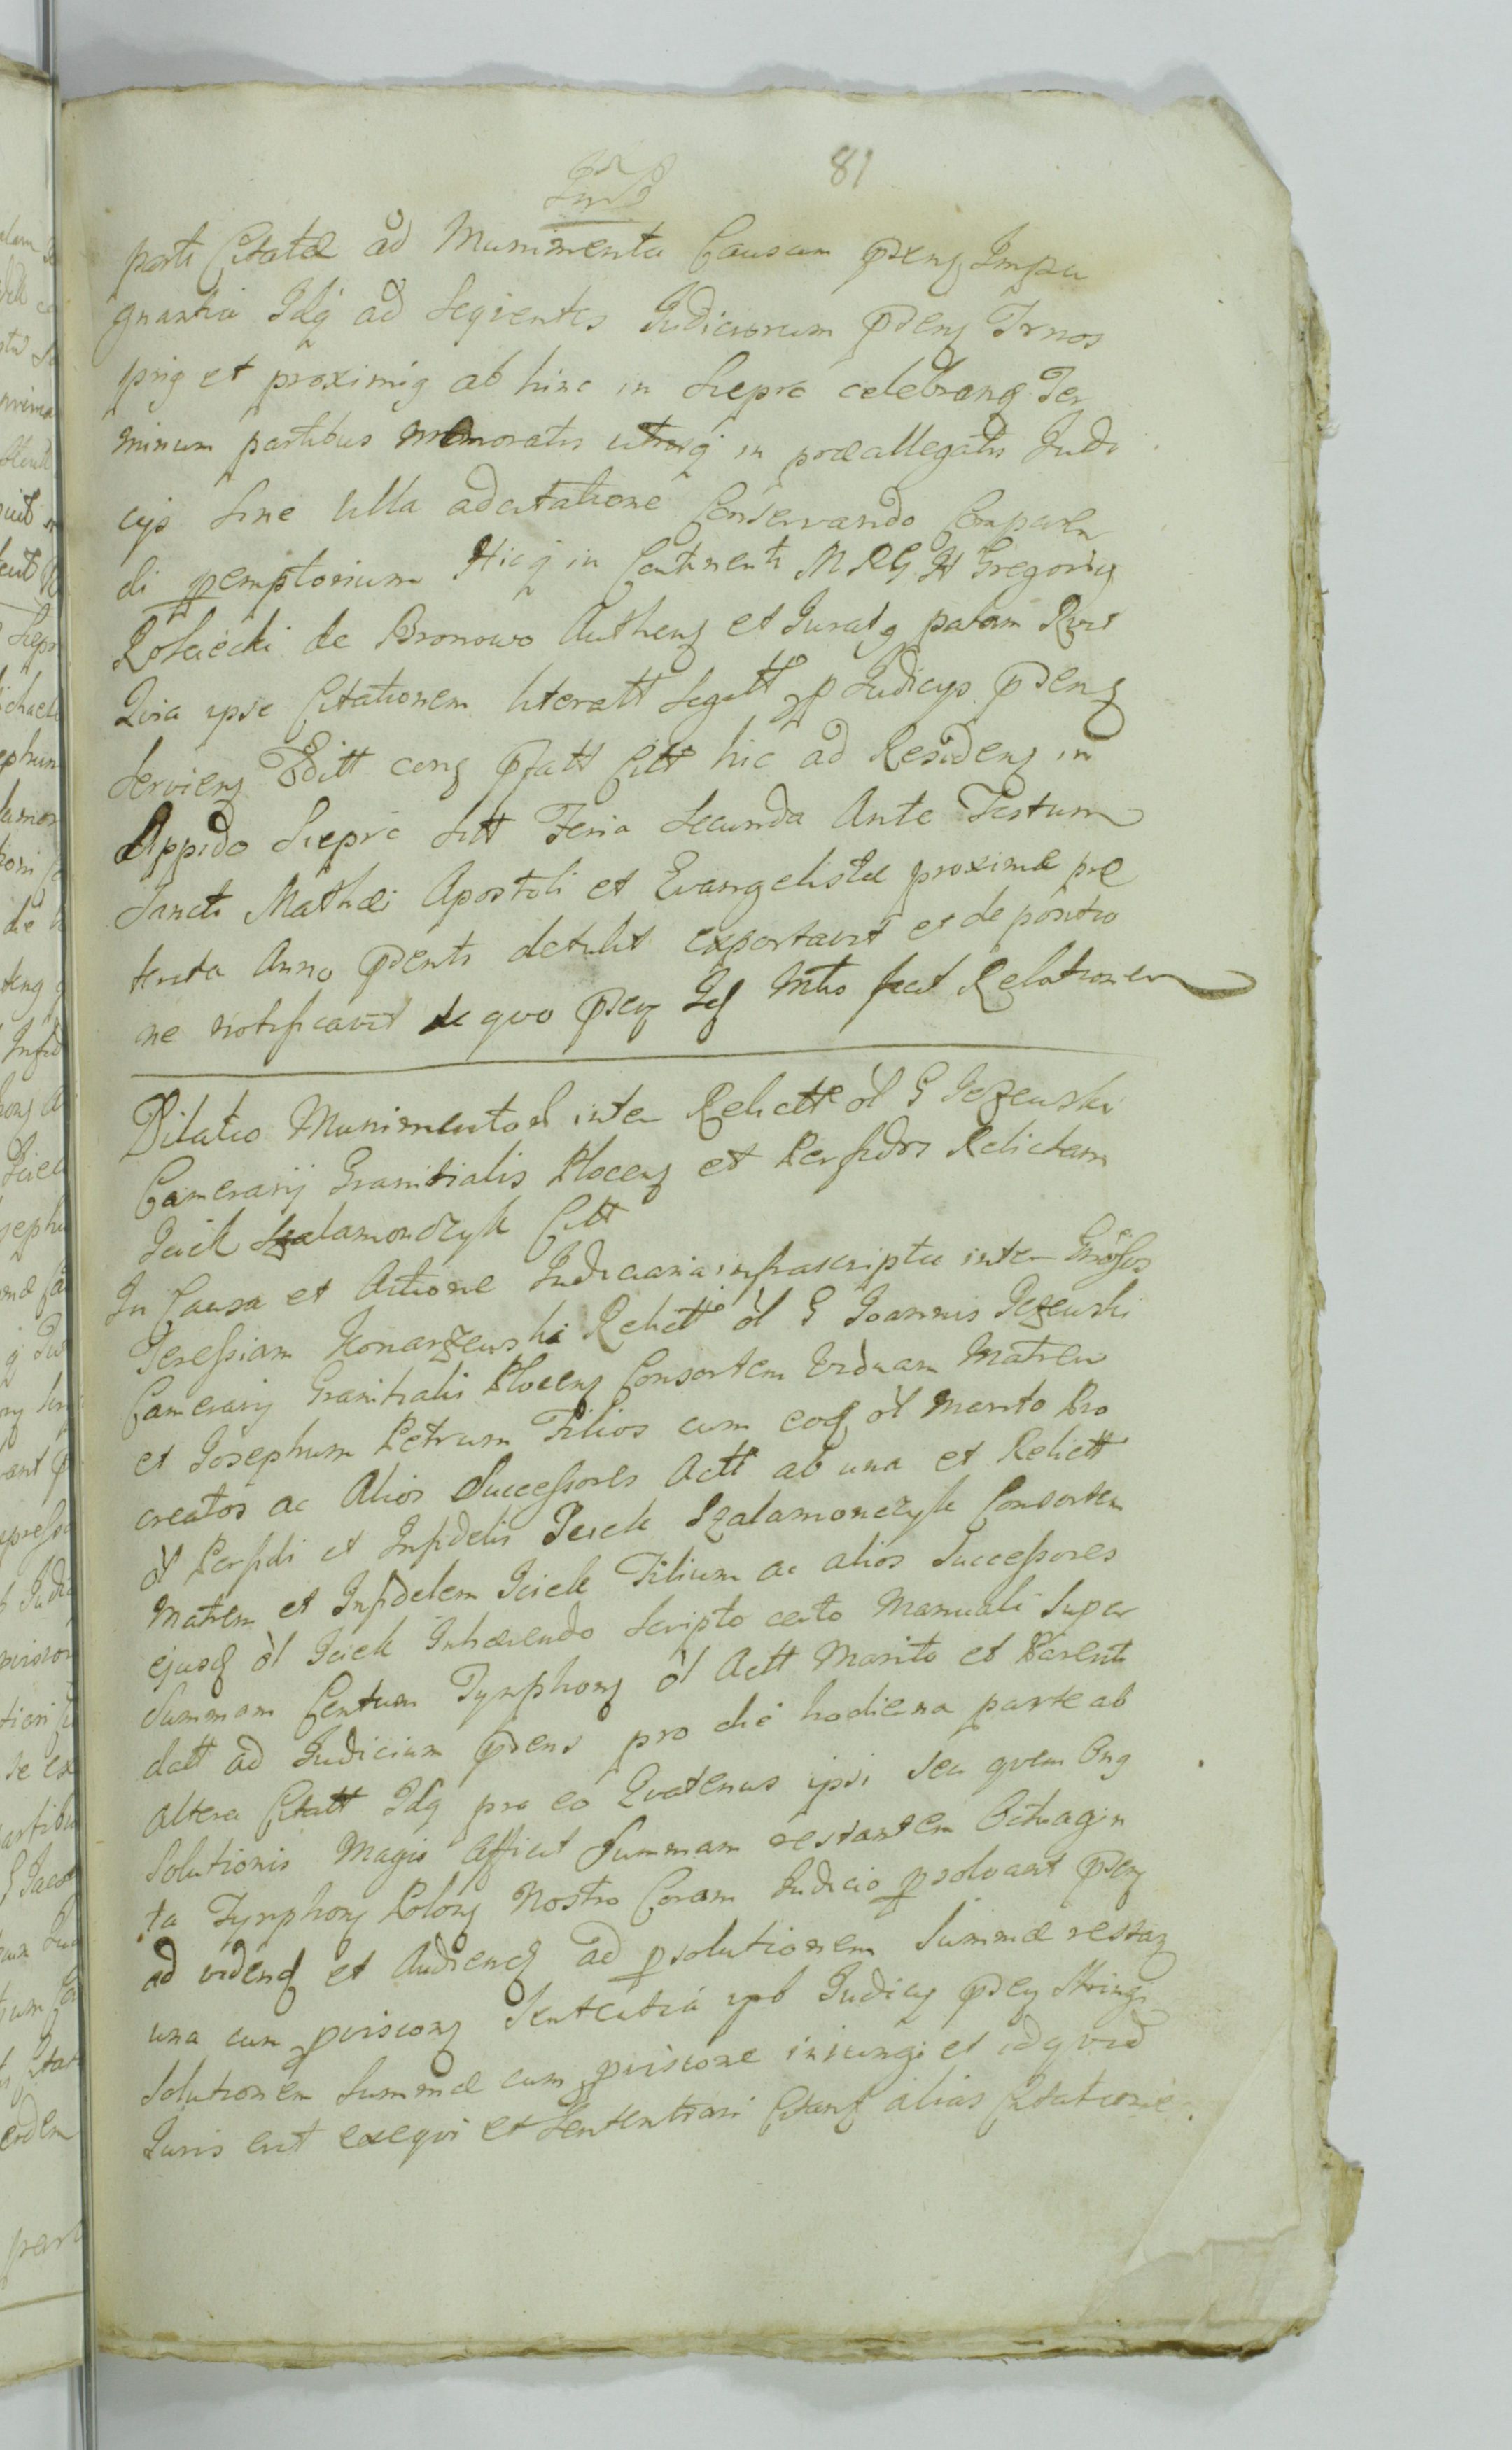 81
parti Citatæ ad Munimenta Causam pñeng Impu
gnantia Idq ad seqventes Judiciorum pñeng Trnos
prig et proximig ab hinc in Siepra celebrang Ter
minum partibus memoratis utrisq in præallegatis Judi
cijs sine ulla adcitatione Conservando Comparen
di pemptorium Hicq in Continenti M R G H Gregorig
Rościecki de Bronowo Autheng et Juratq palam
Qvia ipse Citationem literatt sigatt p Judicijs pñeng
Servieng Editt cong pfatt Citt hic ad Resideng in
Oppido Sieprc sitt Feria Secunda Ante Festum
Sancti Mathæi Apostoli et Evangelistæ proxime præ
terita Anno pñenti detulit exportavit et de positio
ne notificavit de qvo pñeng Isf Mtrs fecit Relationem
Dilatio Munimentor inter Relictt ol G Jeżewski
Camerarij Granitialis Ploceng et Perfidos Relictam
Jciek Szalamonczyk Citt
In Causa et Actione Judiciaria infrascripta inter Gnosos
Teressiam Konarzewska Relictt ol G Joannis Jeżewski
Camerarij Granitialis Ploceng Consortem Viduam Matrem
et Josephum Petrum Filios cum eod ol Marito Pro
creatos ac Alios Successores Actt ab una et Relictt
ol Perfidi et Infidelis Jciek Szalamonczyk Consortem
Matrem et Infidelem Jciek Filium ac alios Successores
ejusd ol Jciek Inhærendo Scripto certo Manuali super
Summam Centum Tynphong ol Actt Marito et Parenti
datt ad Judicium pñens pro die hodierna parte ab
altera Citatt Idq pro eo Qvatenus ipsi seu qvem Ong
Solutionis Magis Afficit Summam restantem Octuagin
ta Tynphong Polong Nostro Coram Judicio psolvant pñeng
ad videnq et Audienq ad psolutionem Summæ restang
una cum pvisiong Sententia ipb Judicij pñeng stringi
Solutionem Summæ cum pvisione iniungi et idqvid
Juris erit exeqvi et Sententiari Citanq alias Citatione